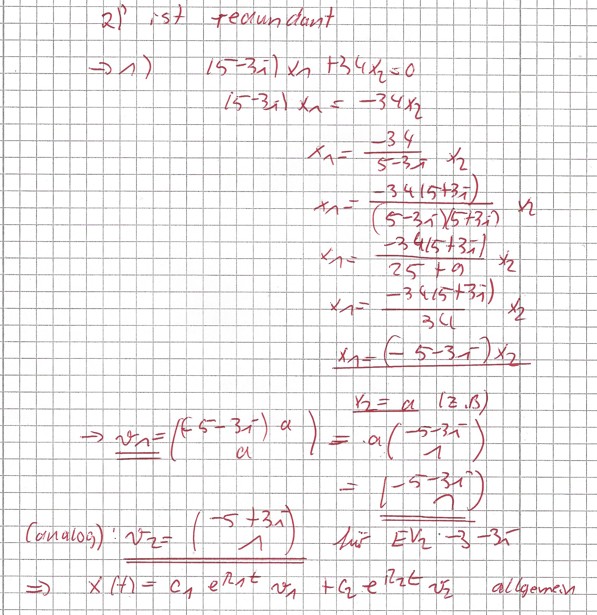 2) ist redundant
→ 1) (5-3i) x₁ + 34x₂ = 0
(5-3i) x₁ = -34x₂
x₁ = \frac{-34}{5-3i} x₂
x₁ = \frac{-34(5+3i)}{(5-3i)(5+3i)} x₂
x₁ = \frac{-34(5+3i)}{25+9} x₂
x₁ = \frac{-34(5+3i)}{34} x₂
x₁ = (-5-3i) x₂
x₂ = a (z.B)
→ v₁ = \binom{(-5-3i) a}{a} = a \binom{-5-3i}{1}
= \binom{-5-3i}{1}
(analog): v₂ = \binom{-5+3i}{1} für EV₂: -3-3i
⇒ x(t) = c₁ e^{λ₁t} v₁ + c₂ e^{λ₂t} v₂ allgemein